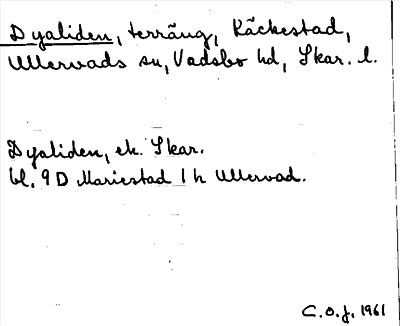 Dyaliden, terräng, Käckestad,
Ullervads sn, Vadsbo hd, Skar. l.
Dyaliden, ek. Skar.
bl. 9D Mariestad 1 h Ullervad.
C.O.J. 1961